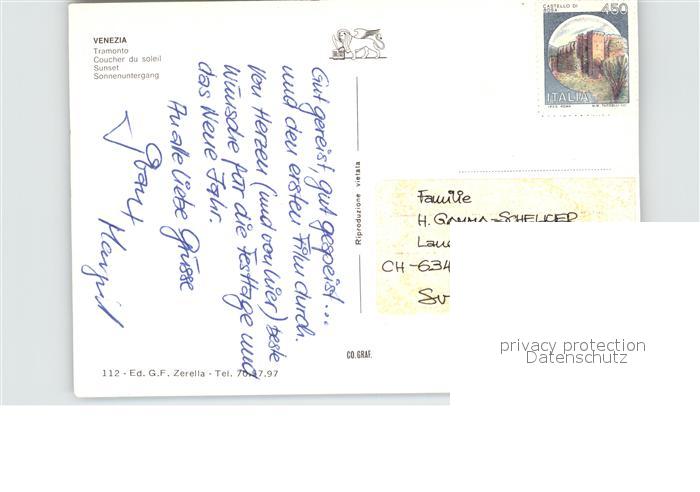 VENEZIA
Tramonto
Coucher du soleil
Sunset
Sonnenuntergang
CASTELLO DI
ROSA
450
ITALIA
Gut gereist, gut gespeist...
und den ersten Film durch.
Von Herzen (und von hier) beste
Wünsche für die Festtage und
das Neue Jahr.
An alle liebe Grüsse
Riproduzione vietata
Familie
H. GAMMA-
CH-634
CO.GRAF.
112 - Ed. G.F. Zerella - Tel. 70.47.97
privacy protection
Datenschutz